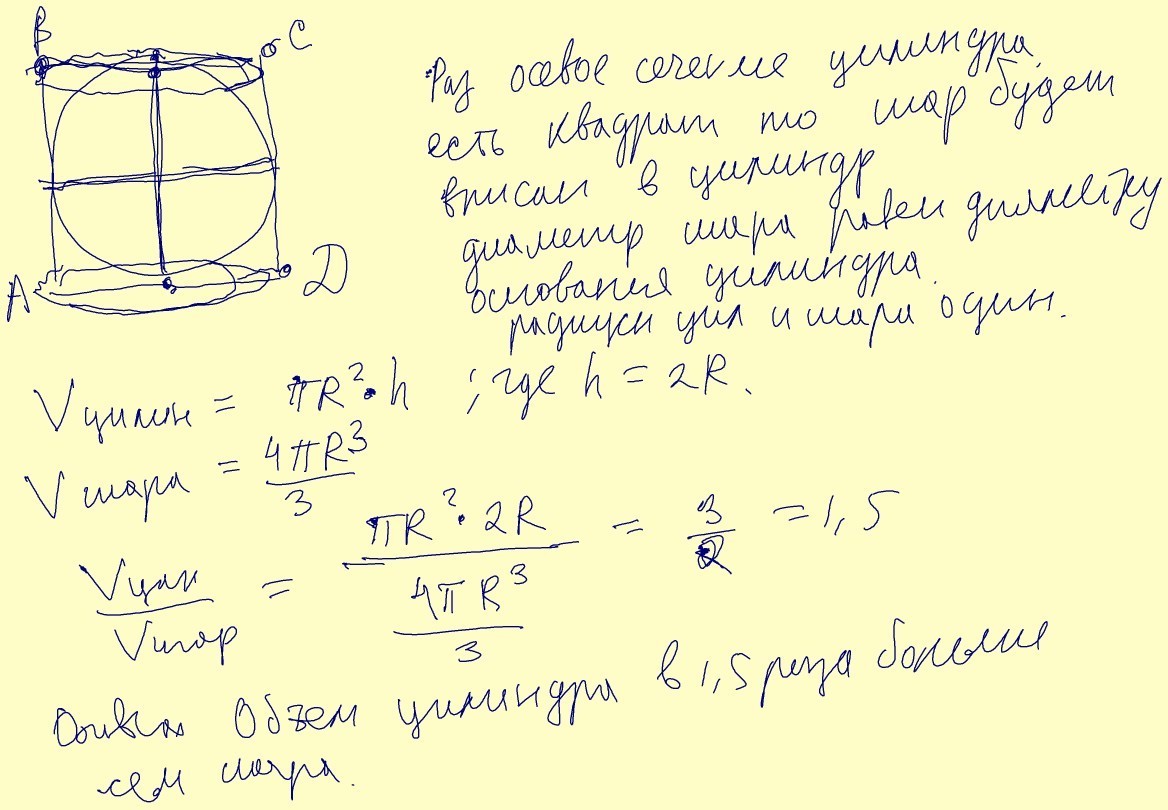 B
C
A
D
Раз осевое сечение цилиндра
есть квадрат то шар будет
вписан в цилиндр
диаметр шара равен диаметру
основания цилиндра.
радиусы цил и шара один.
V цилин = πR²·h ; где h = 2R.
V шара = 4πR³/3
Vцил/Vшар = (πR²·2R)/(4πR³/3) = 3/2 = 1,5
Объем цилиндра в 1,5 раза больше
чем шара.